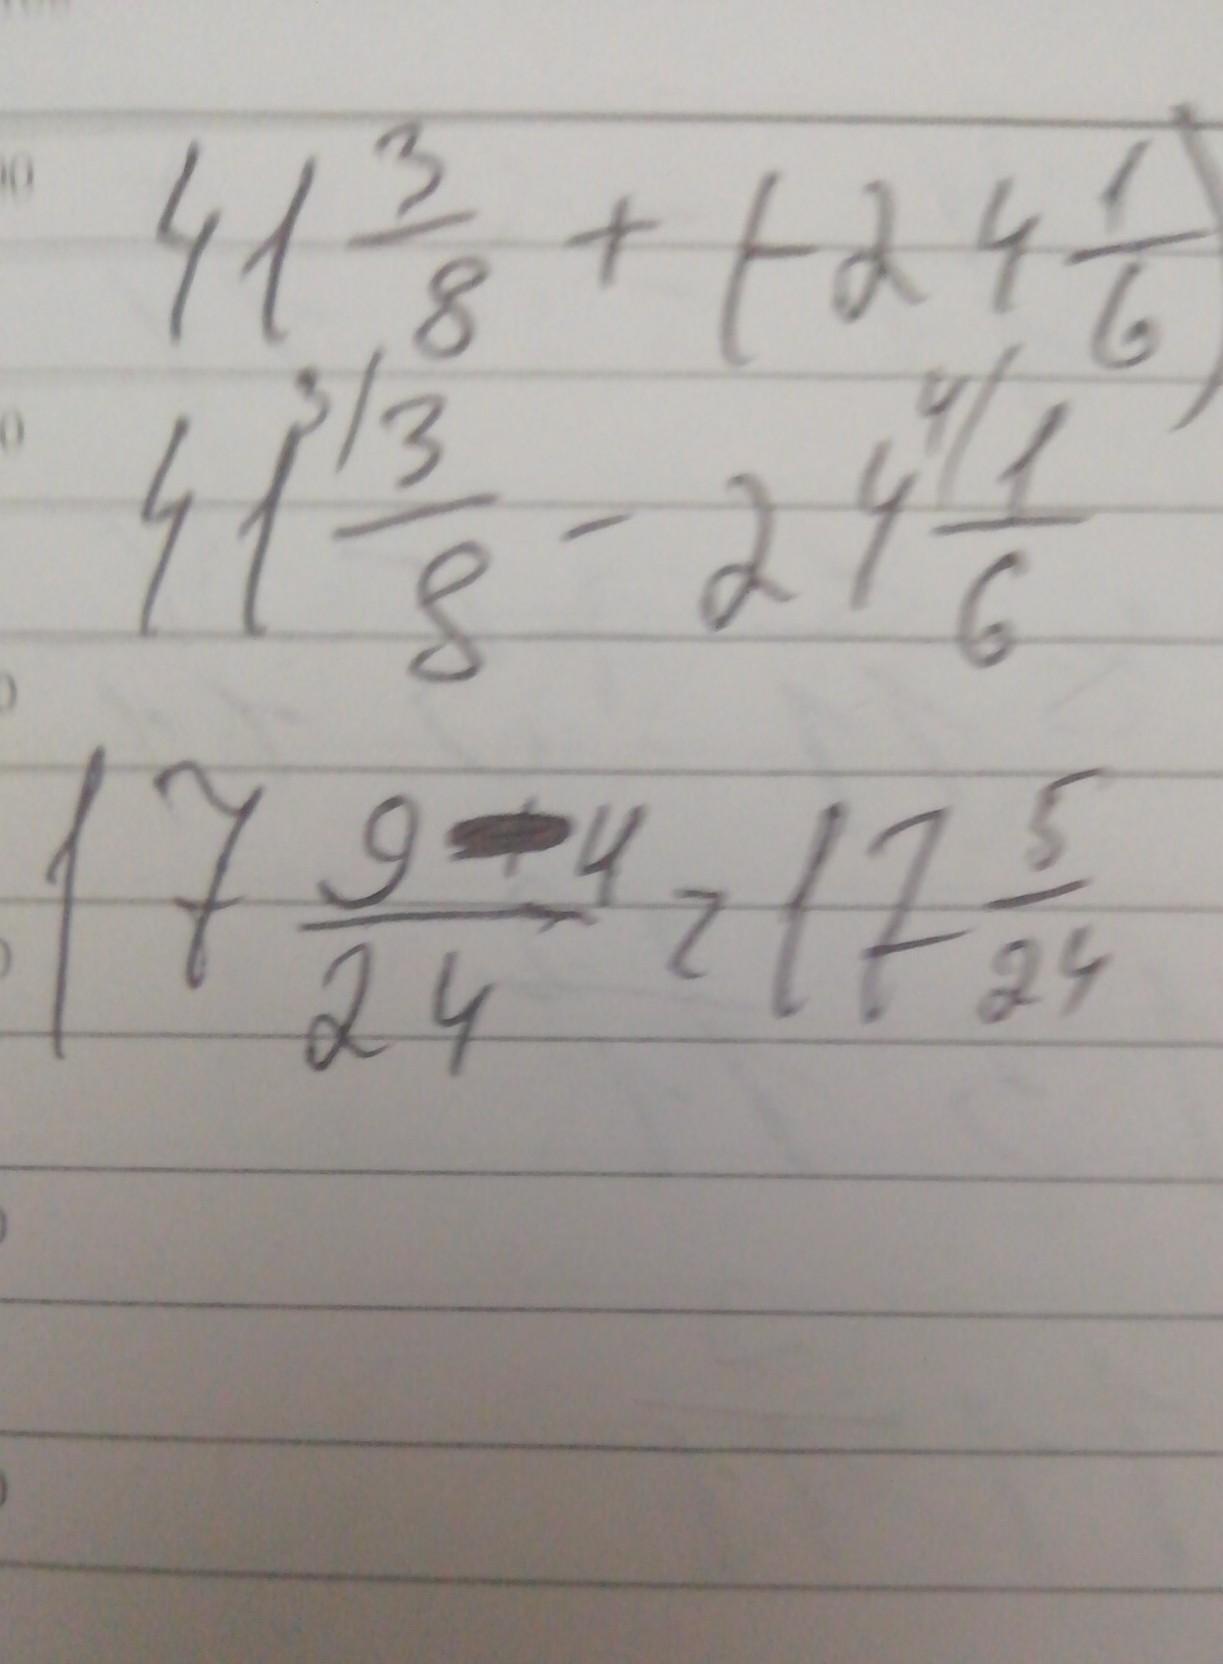 41 3/8 + (-24 1/6)
41 3/ 3/8 - 24 4/ 1/6
17 9-4/24 = 17 5/24